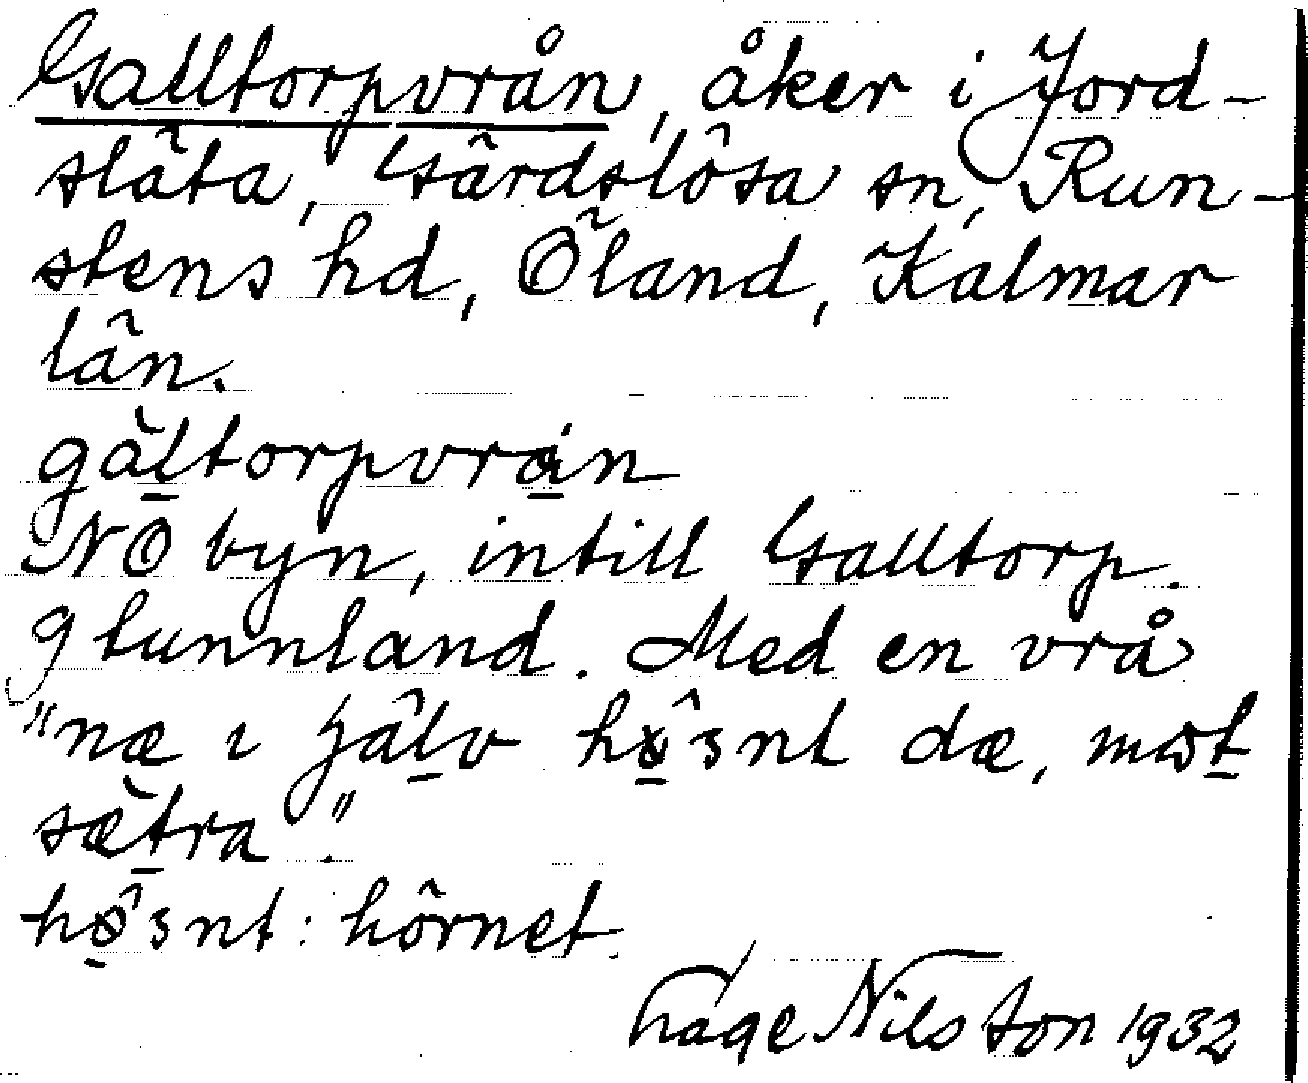 Galltorpvrån, åker i Jord-
släta, Gärdslösa sn, Run-
stens hd, Öland, Kalmar
län.
gàl̲torpvrá̲n
NÖ byn, intill Galltorp.
9 tunnland. Med en vrå
"næ ı jâl̲v hø̲̂ɜnt dæ, mot̲
sæ̀t̲ra".
hø̲̂ɜnt: hörnet.
Tage Nilsson 1932